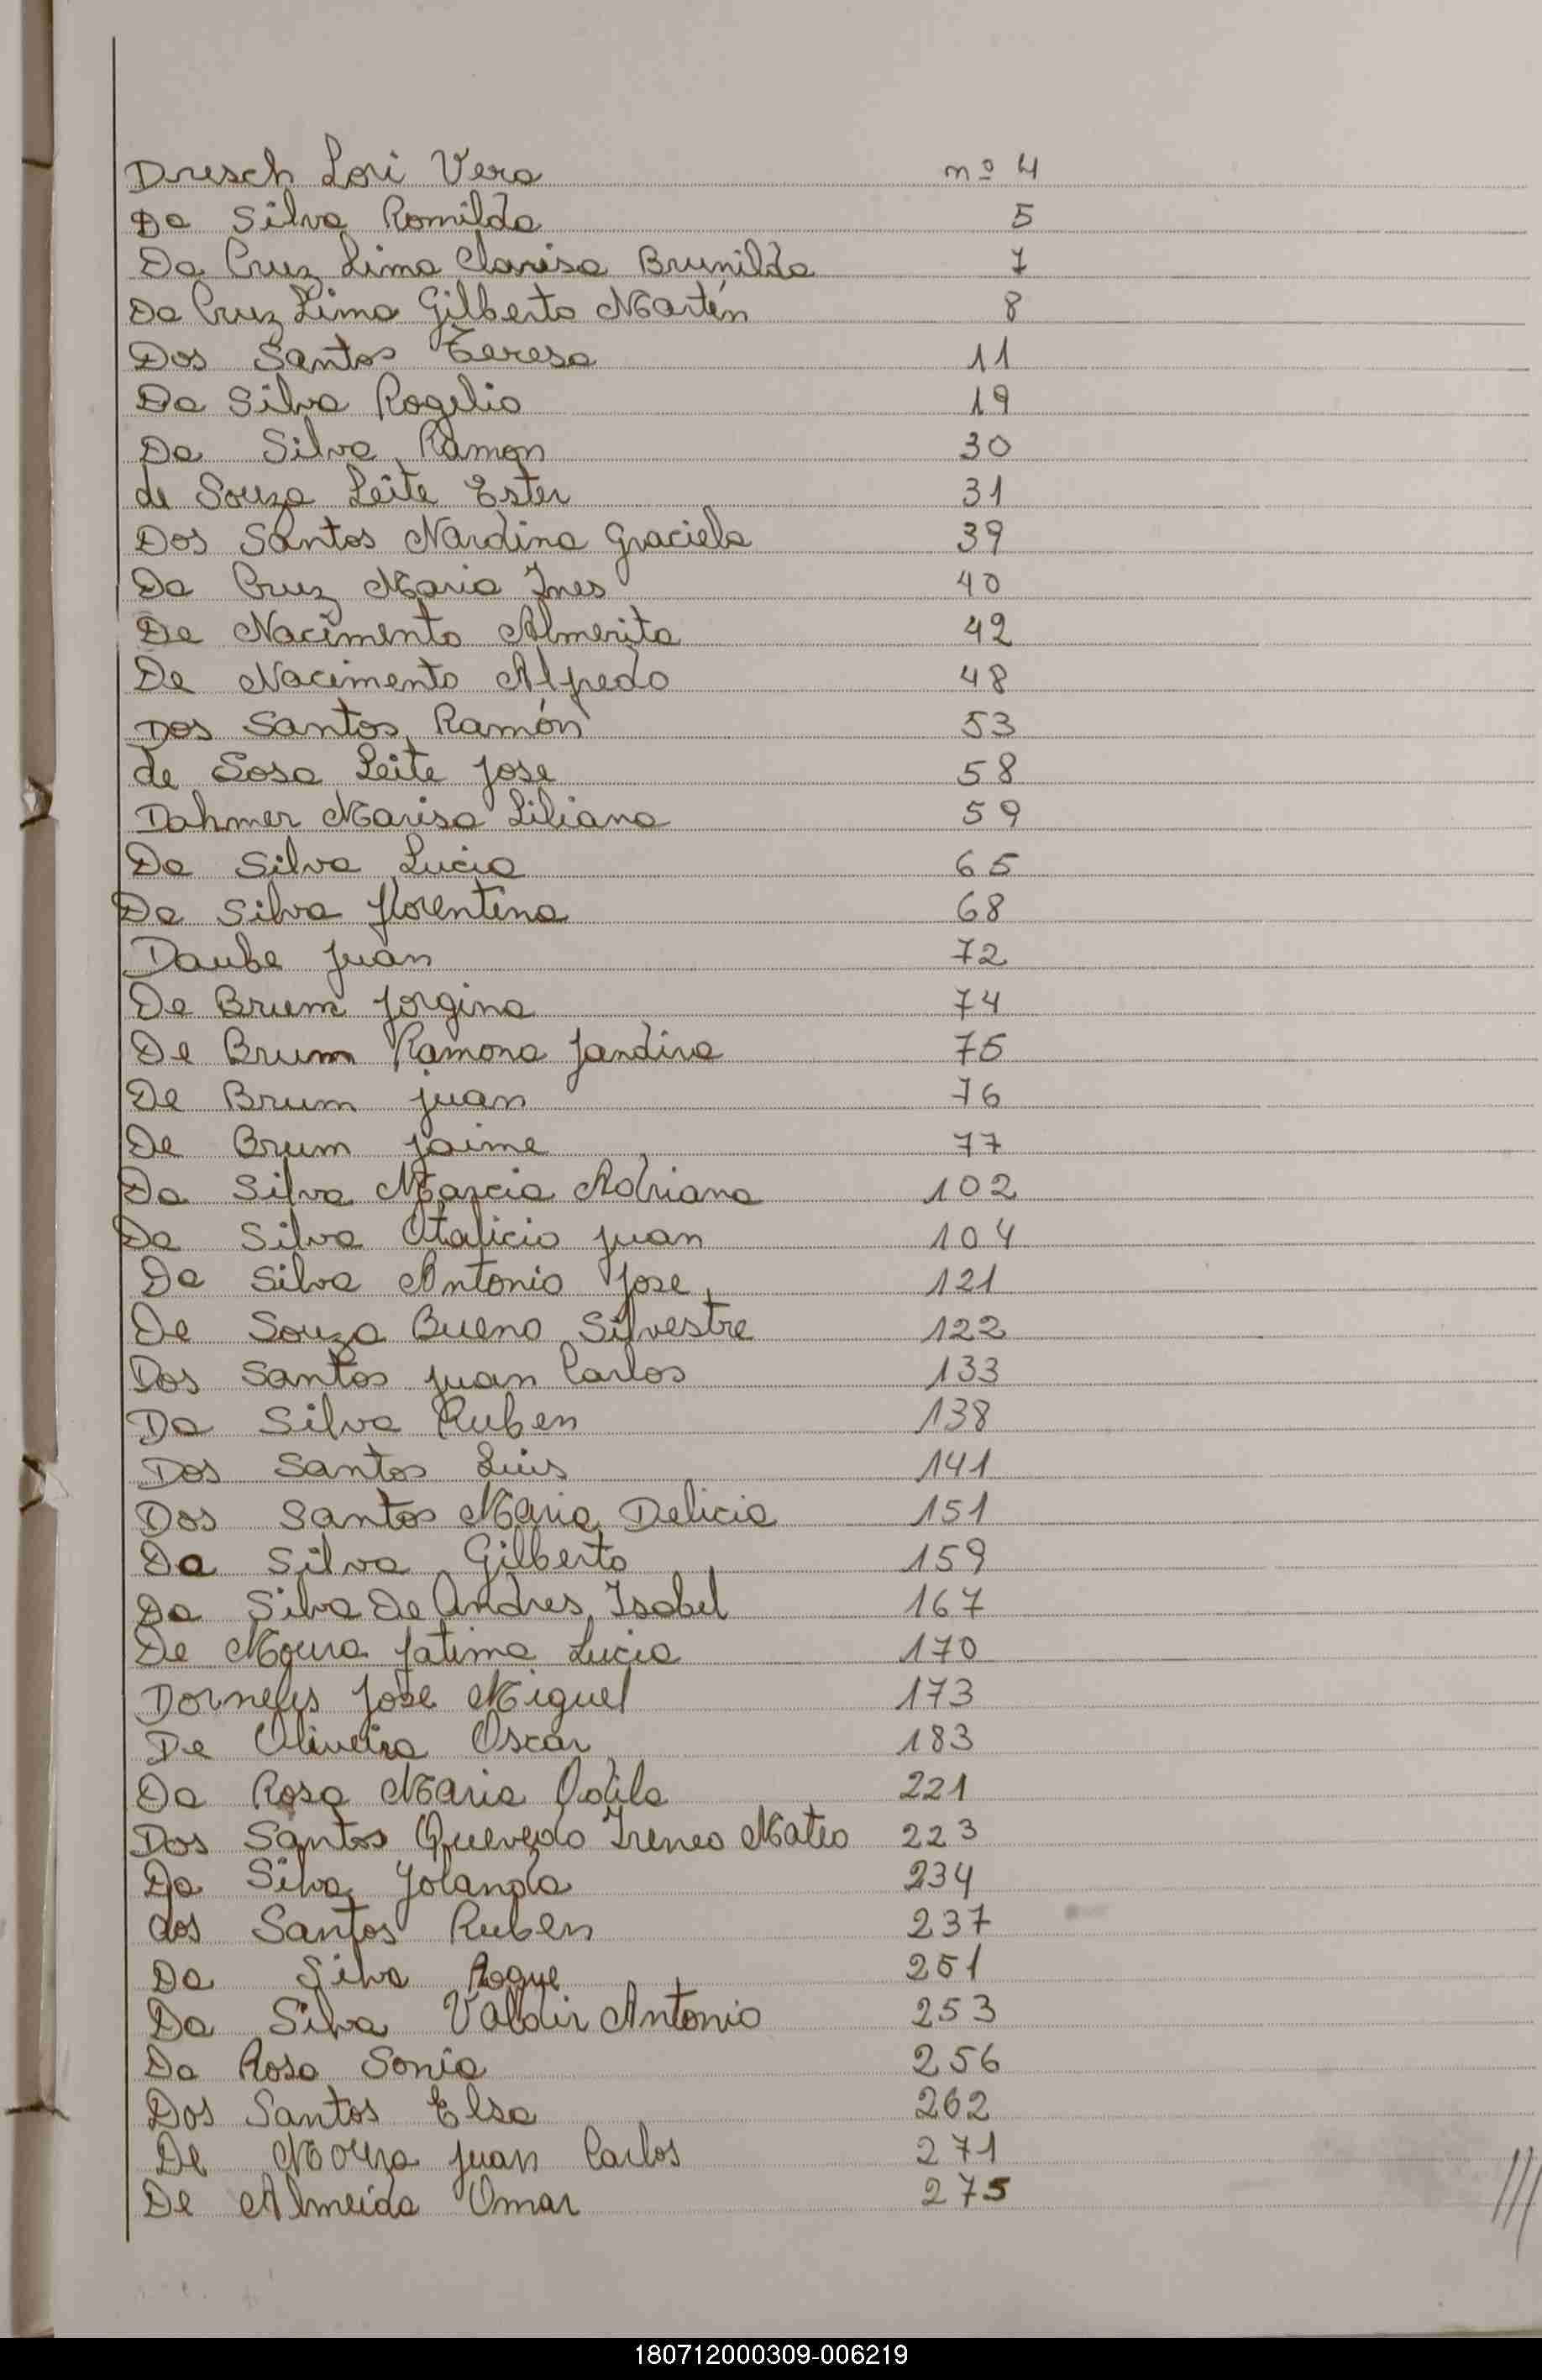 Dresch Lori Vera nº 4
Da Silva Romilda 5
Da Cruz Lima Clarisa Brunilda 7
Da Cruz Lima Gilberto Martín 8
Dos Santos Teresa 11
Da Silva Rogelio 19
Da Silva Ramon 30
de Souza Leite Ester 31
Dos Santos Nardina Graciela 39
Da Cruz Maria Ines 40
De Nacimento Almerita 42
De Nacimento Alfredo 48
Dos Santos Ramón 53
de Sosa Leite Jose 58
Dahmer Marisa Liliana 59
Da Silva Lucia 65
Da Silva Florentina 68
Daube Juan 72
De Brum Jorgina 74
De Brum Ramona Jandira 75
De Brum Juan 76
De Brum Jaime 77
Da Silva Marcia Adriana 102
Da Silva Otalicio Juan 104
Da Silva Antonio Jose 121
De Souza Bueno Silvestre 122
Dos Santos Juan Carlos 133
Da Silva Ruben 138
Dos Santos Luis 141
Dos Santos Maria Delicia 151
Da Silva Gilberto 159
Da Silva De Andres Isabel 167
De Moura Fatima Lucia 170
Dornelys Jose Miguel 173
De Oliveira Oscar 183
Da Rosa Maria Odila 221
Dos Santos Quevedo Ireneo Mateo 223
Da Silva Yolanda 234
dos Santos Ruben 237
Da Silva Roque 251
Da Silva Valdir Antonio 253
Da Rosa Sonia 256
Dos Santos Elsa 262
De Moura Juan Carlos 271
De Almeida Omar 275
///
180712000309-006219